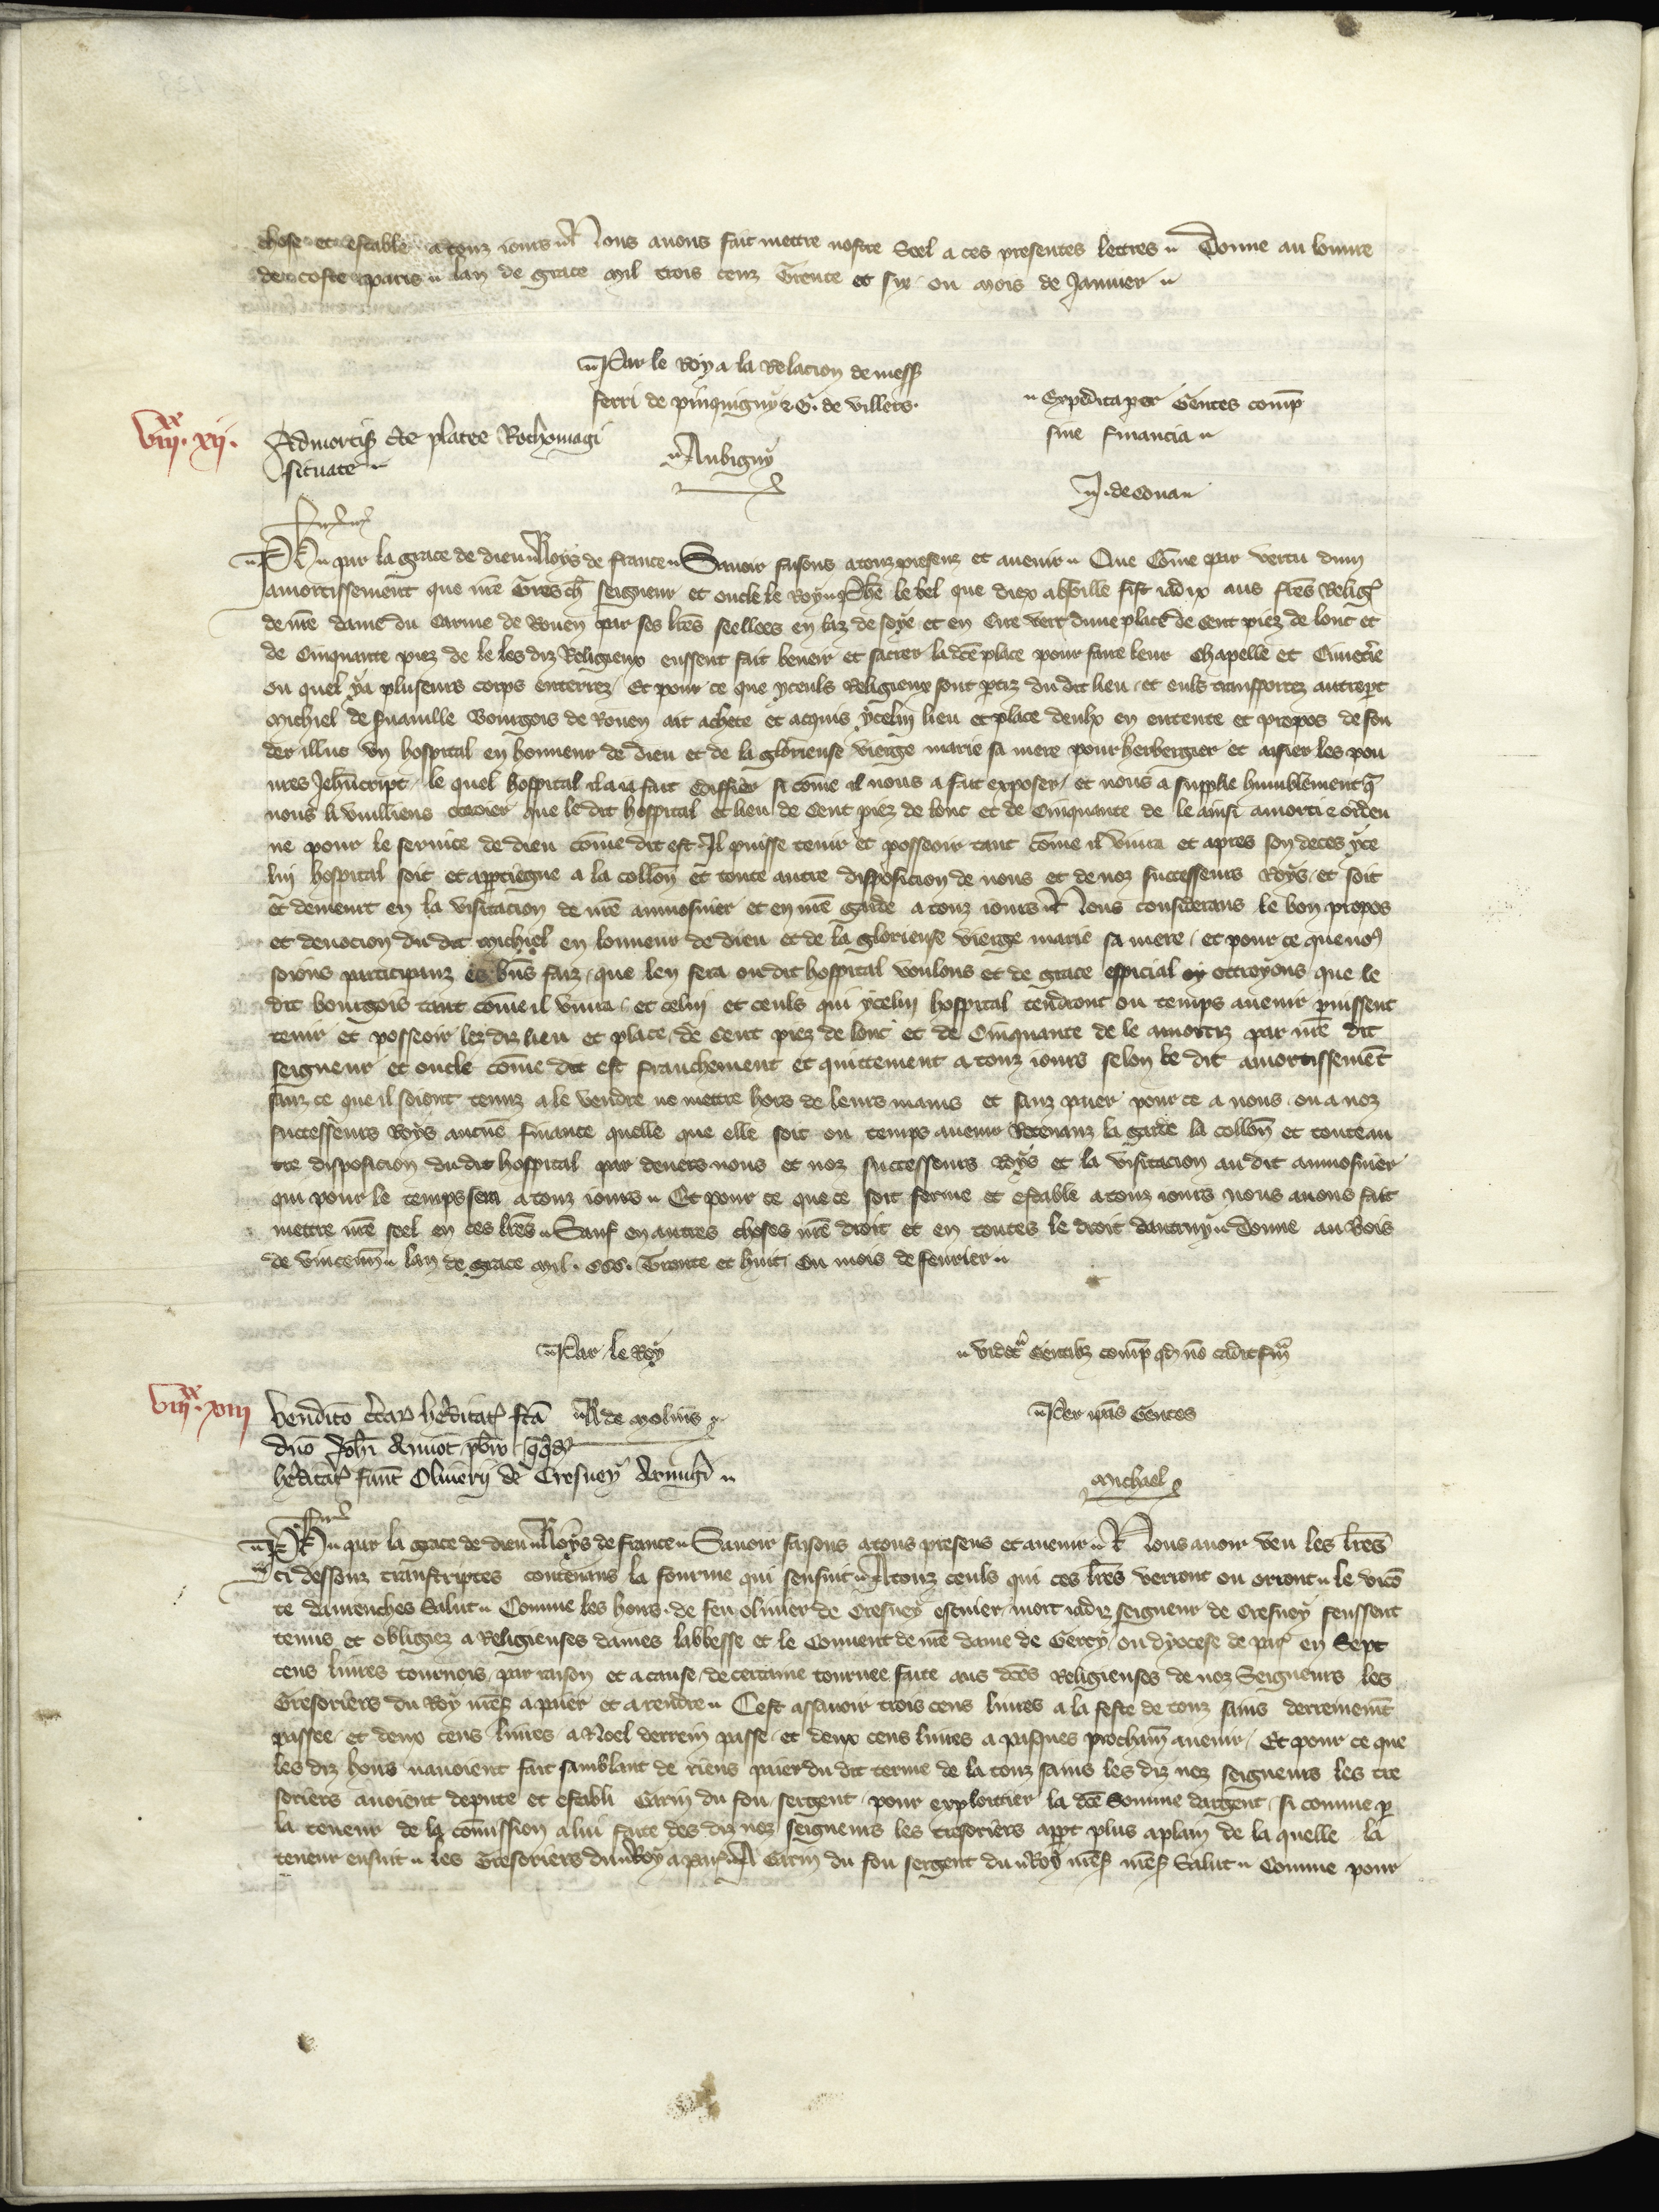 chose et estable a touz iours Nous auons fait mettre nostre Seel a ces presentes lettres Donne au louure
de coste paris lan de grace Mil trois cenz Trente et six ou mois de Januier
Par le Roy a la Relacion de mess
ferri de pinquigny & G. de villers
Expedita per Gentes comp
sine financia
Aubigny
VIII xx XII.
Admortis cte platee Rothomagi
situate
Ph par la grace de dieu Roys de france Sauoir faisons a touz presenz et auenir Que Come par vertu dun
amortissement que nre Tres ch seigneur et oncle le Roy Phe le bel que diex absoille fist iadix aus fres Relig
de nre dame du Carme de Rouen par ses lres seellees en laz de soye et en Cire vert dune place de Cent piez de lonc et
de Cinquante piez de le les diz Religieux eussent fait beneir et sacrer la dce place pour faire leur Chapelle et Cimetire
ou quel ya pluseurs corps enterrez Et pour ce que yceuls Religieux sont ptiz du dit lieu et euls transportez autrept
Michiel de Bourgois de Rouen ait achete et acquis ycelui lieu et place deulx en entente et propos de fon
der illuc vn hospital en honneur de dieu et de la glorieuse vierge marie sa mere pour herbergier et aisier les pou
ures Jehucript le quel hospital il ait fait edifier si come il nous a fait exposer et nous a supplie humblement q
nous li vuilliens ottroier que le dit hospital et lieu de Cent piez de lonc et de Cinquante de le ainsi amorti & orden
ne pour le seruice de dieu come dit est Il puisse tenir et posseoir tant come il viura et apres son deces yce
lui hospital soit et appartiegne a la collon et toute autre disposicion de nous et de noz successeurs Roys et soit
et demeurt en la visitacion de nre aumosnier et en nre garde a touz iours Nous considerans le bon propos
et deuocion du dit Michiel en lonneur de dieu et de la glorieuse vierge marie sa mere et pour ce que nous
soions participanz es bns faiz que len fera ou dit hospital voulons et de grace especial ottroyons que le
dit bourgois tant come il viura et celui et ceuls qui ycelui hospital tendront ou temps auenir puissent
tenir et posseoir lez diz lieu et place de Cent piez de lonc et de Cinquante de le amortiz par nre dit
seigneur et oncle come dit est franchement et quittement a touz iours selon le dit amortissement
sanz ce que il soient tenuz a le vendre ne mettre hors de leurs mains et sanz paier pour ce a nous ou a noz
successeurs Roys aucune finance quelle que elle soit ou temps auenir Retenanz la garde la collon et toute au
tre disposicion du dit hospital par deuers nous et noz successeurs Roys et la visitacion au dit aumosnier
qui pour le temps sera a touz iours Et pour ce que ce soit ferme et estable a touz iours nous auons fait
mettre nre seel en ces lres Sauf en autres choses nre droit et en toutes le droit dautruy Donne au Bois
de vincenn lan de grace Mil. CCC. Trente et huit ou mois de feurier
Par le Roy
videt Gentibz comp qd no cadit fin
VIII xx XIII
Vendito hereditat fca
R de Molins
Per ipas Gentes
dno Joh pbro
hereditat Oliuerij de Cresney Armigi
Michael
Ph par la grace de dieu Roys de france Sauoir faisons a tous presens et auenir Nous auoir veu les lres
ci dessouz transcriptes contenans la fourme qui sensuit A touz ceuls qui ces lres verront ou orront le vico
te dauenches Salut Comme les hoirs de feu oliuier de Cresney escuier mort iadiz seigneur de Cresney feussent
tenus et obligiez a Religieuses dames labbesse et le Conuent de nre dame de Gercy ou dyocese de par en Sept
cens liures tournois par raison et a cause de certaine tournee faite aus dces Religieuses de noz Seigneurs les
Tresoriers du Roy nres a paier et a rendre Cest assauoir trois cens liures a la feste de touz sains derrenemt
passee et deux cens liures a Noel derrein passe et deux cens liures a pasques prochain auenir Et pour ce que
les diz hoirs nauoient fait samblant de riens paier du dit terme de la touz sains les diz noz seigneurs les tre
soriers auoient depute et establi Garin du fou sergent pour exploitier la dce Somme dargent si comme p
la teneur de la comission a lui faite des diz noz seigneurs les tresoriers appt plus a plain de la quelle la
teneur ensuit Les Tresoriers du Roy a par A Garin du fou sergent du Roy nres nres Salut Comme pour